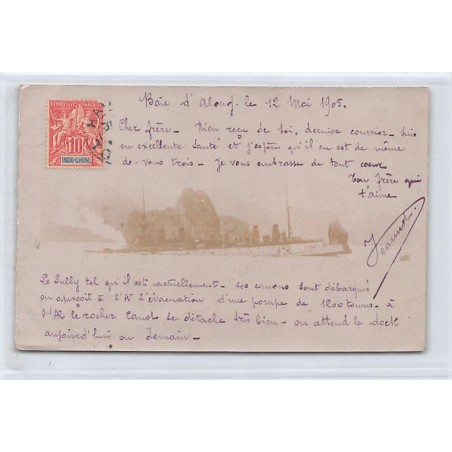 Baie d'Along. le 12 Mai 1905.
Cher frère. - Rien reçu de toi, dernier courrier - suis
en excellente santé et j'espère qu'il en est de même
de vous trois - Je vous embrasse de tout cœur
Ton frère qui
t'aime
Jeannot.
10
INDO-CHINE
Le Sully tel qu'il est actuellement - ses canons sont débarqués
on aperçoit à l'AV l'évacuation d'une pompe de 1200 tonnes - à
l'AR le rocher Canot se détache très bien - on attend le dock
aujourd'hui ou demain -